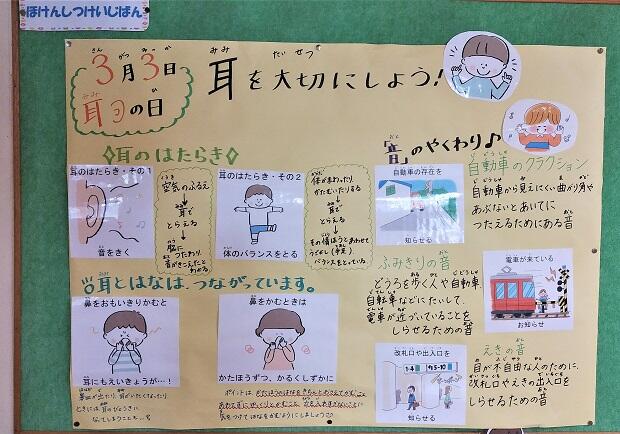 ほけんしつけいじばん
3月3日
耳の日
耳を大切にしよう!
◊耳のはたらき◊
耳のはたらき・その1
音をきく
空気のふるえ
↓
耳で
とらえる
↓
脳につたわり
音がきこえたと
わかる
耳のはたらき・その2
体のバランスをとる
体がまわったり
かたむいたりする
↓
耳で
とらえる
↓
バランスをとっている
耳とはなは、つながっています。
鼻をおもいきりかむと
耳にもえいきょうが…!
鼻血が出たり、耳がいたくなったり
ときには、耳のびょうきに
なってしまうことも…
鼻をかむときは
かたほうずつ、かるくしずかに
ポイントは、かたほうのはなを
気をつけてはなをかむようにしましょう
「音」のやくわり♪
自動車の存在を
知らせる
自動車のクラクション
自動車から見えにくい曲がり角や
あぶないとあいてに
つたえるためにある音
ふみきりの音
どうろを歩く人や自動車
自転車などにたいして、
電車が近づいていることを
しらせるための音
電車が来ている
お知らせ
改札口や出入口を
知らせる
えきの音
目が不自由な人のために、
改札口やえきの出入口を
しらせるための音